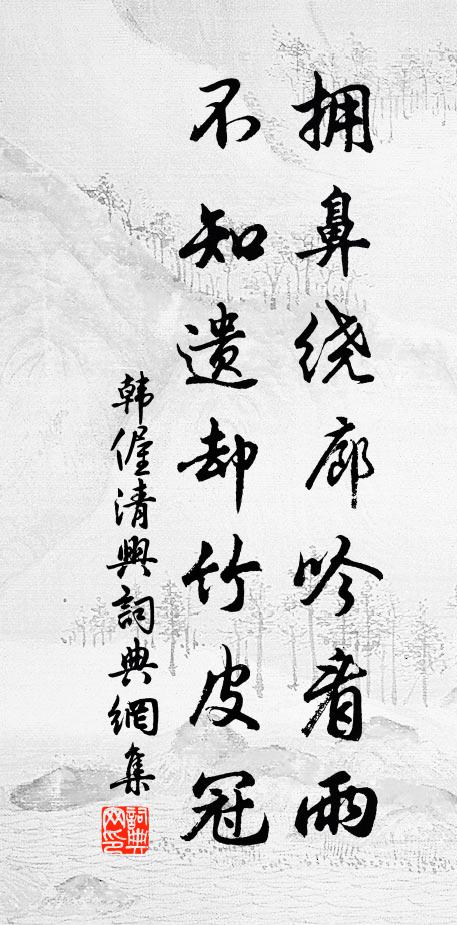 拥鼻绕廊吟看雨
不知遗却竹皮冠
韩偓清興詞典網集
詞典网印